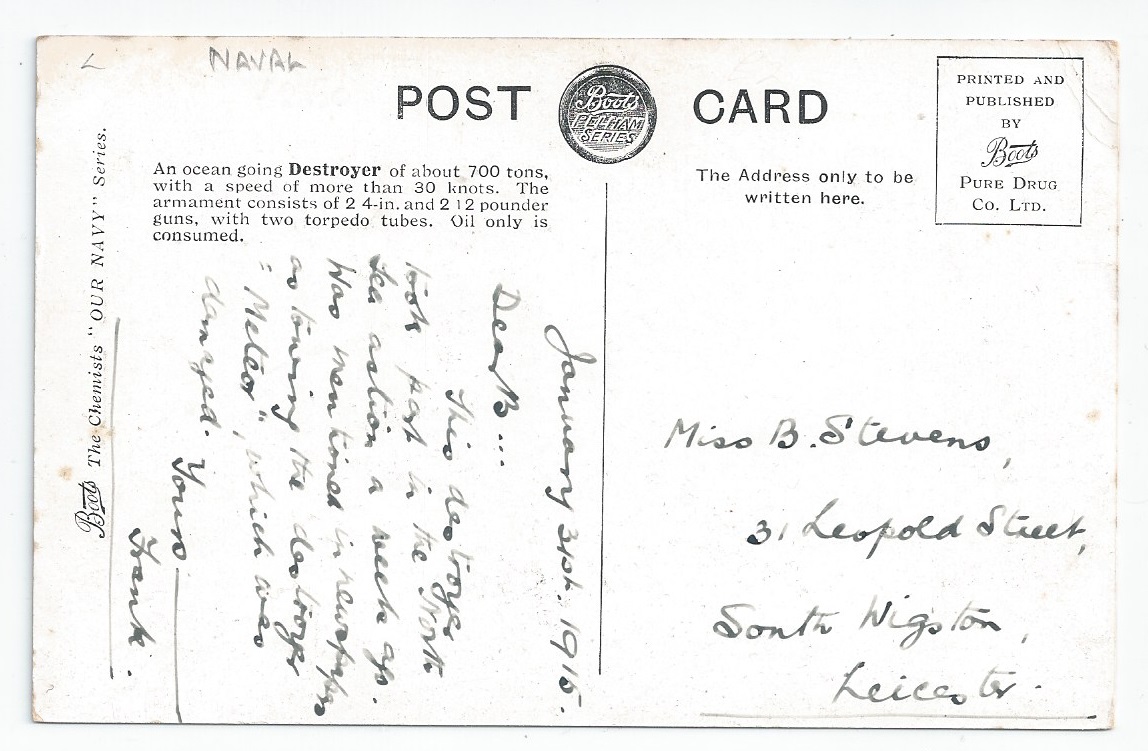 NAVAL
POST CARD
Boots
PELHAM
SERIES
PRINTED AND
PUBLISHED
BY
Boots
PURE DRUG
CO. LTD.
An ocean going Destroyer of about 700 tons,
with a speed of more than 30 knots. The
armament consists of 2 4-in. and 2 12 pounder
guns, with two torpedo tubes. Oil only is
consumed.
The Address only to be
written here.
January 31st. 1915.
Dear B...
This destroyer
took part in the North
Sea action a week ago.
Was mentioned in newspapers
as towing the destroyer
"Meteor", which was
damaged.
Yours
Frank.
Miss B. Stevens,
31 Leopold Street,
South Wigston,
Leicester.
Boots The Chemists "OUR NAVY" Series.